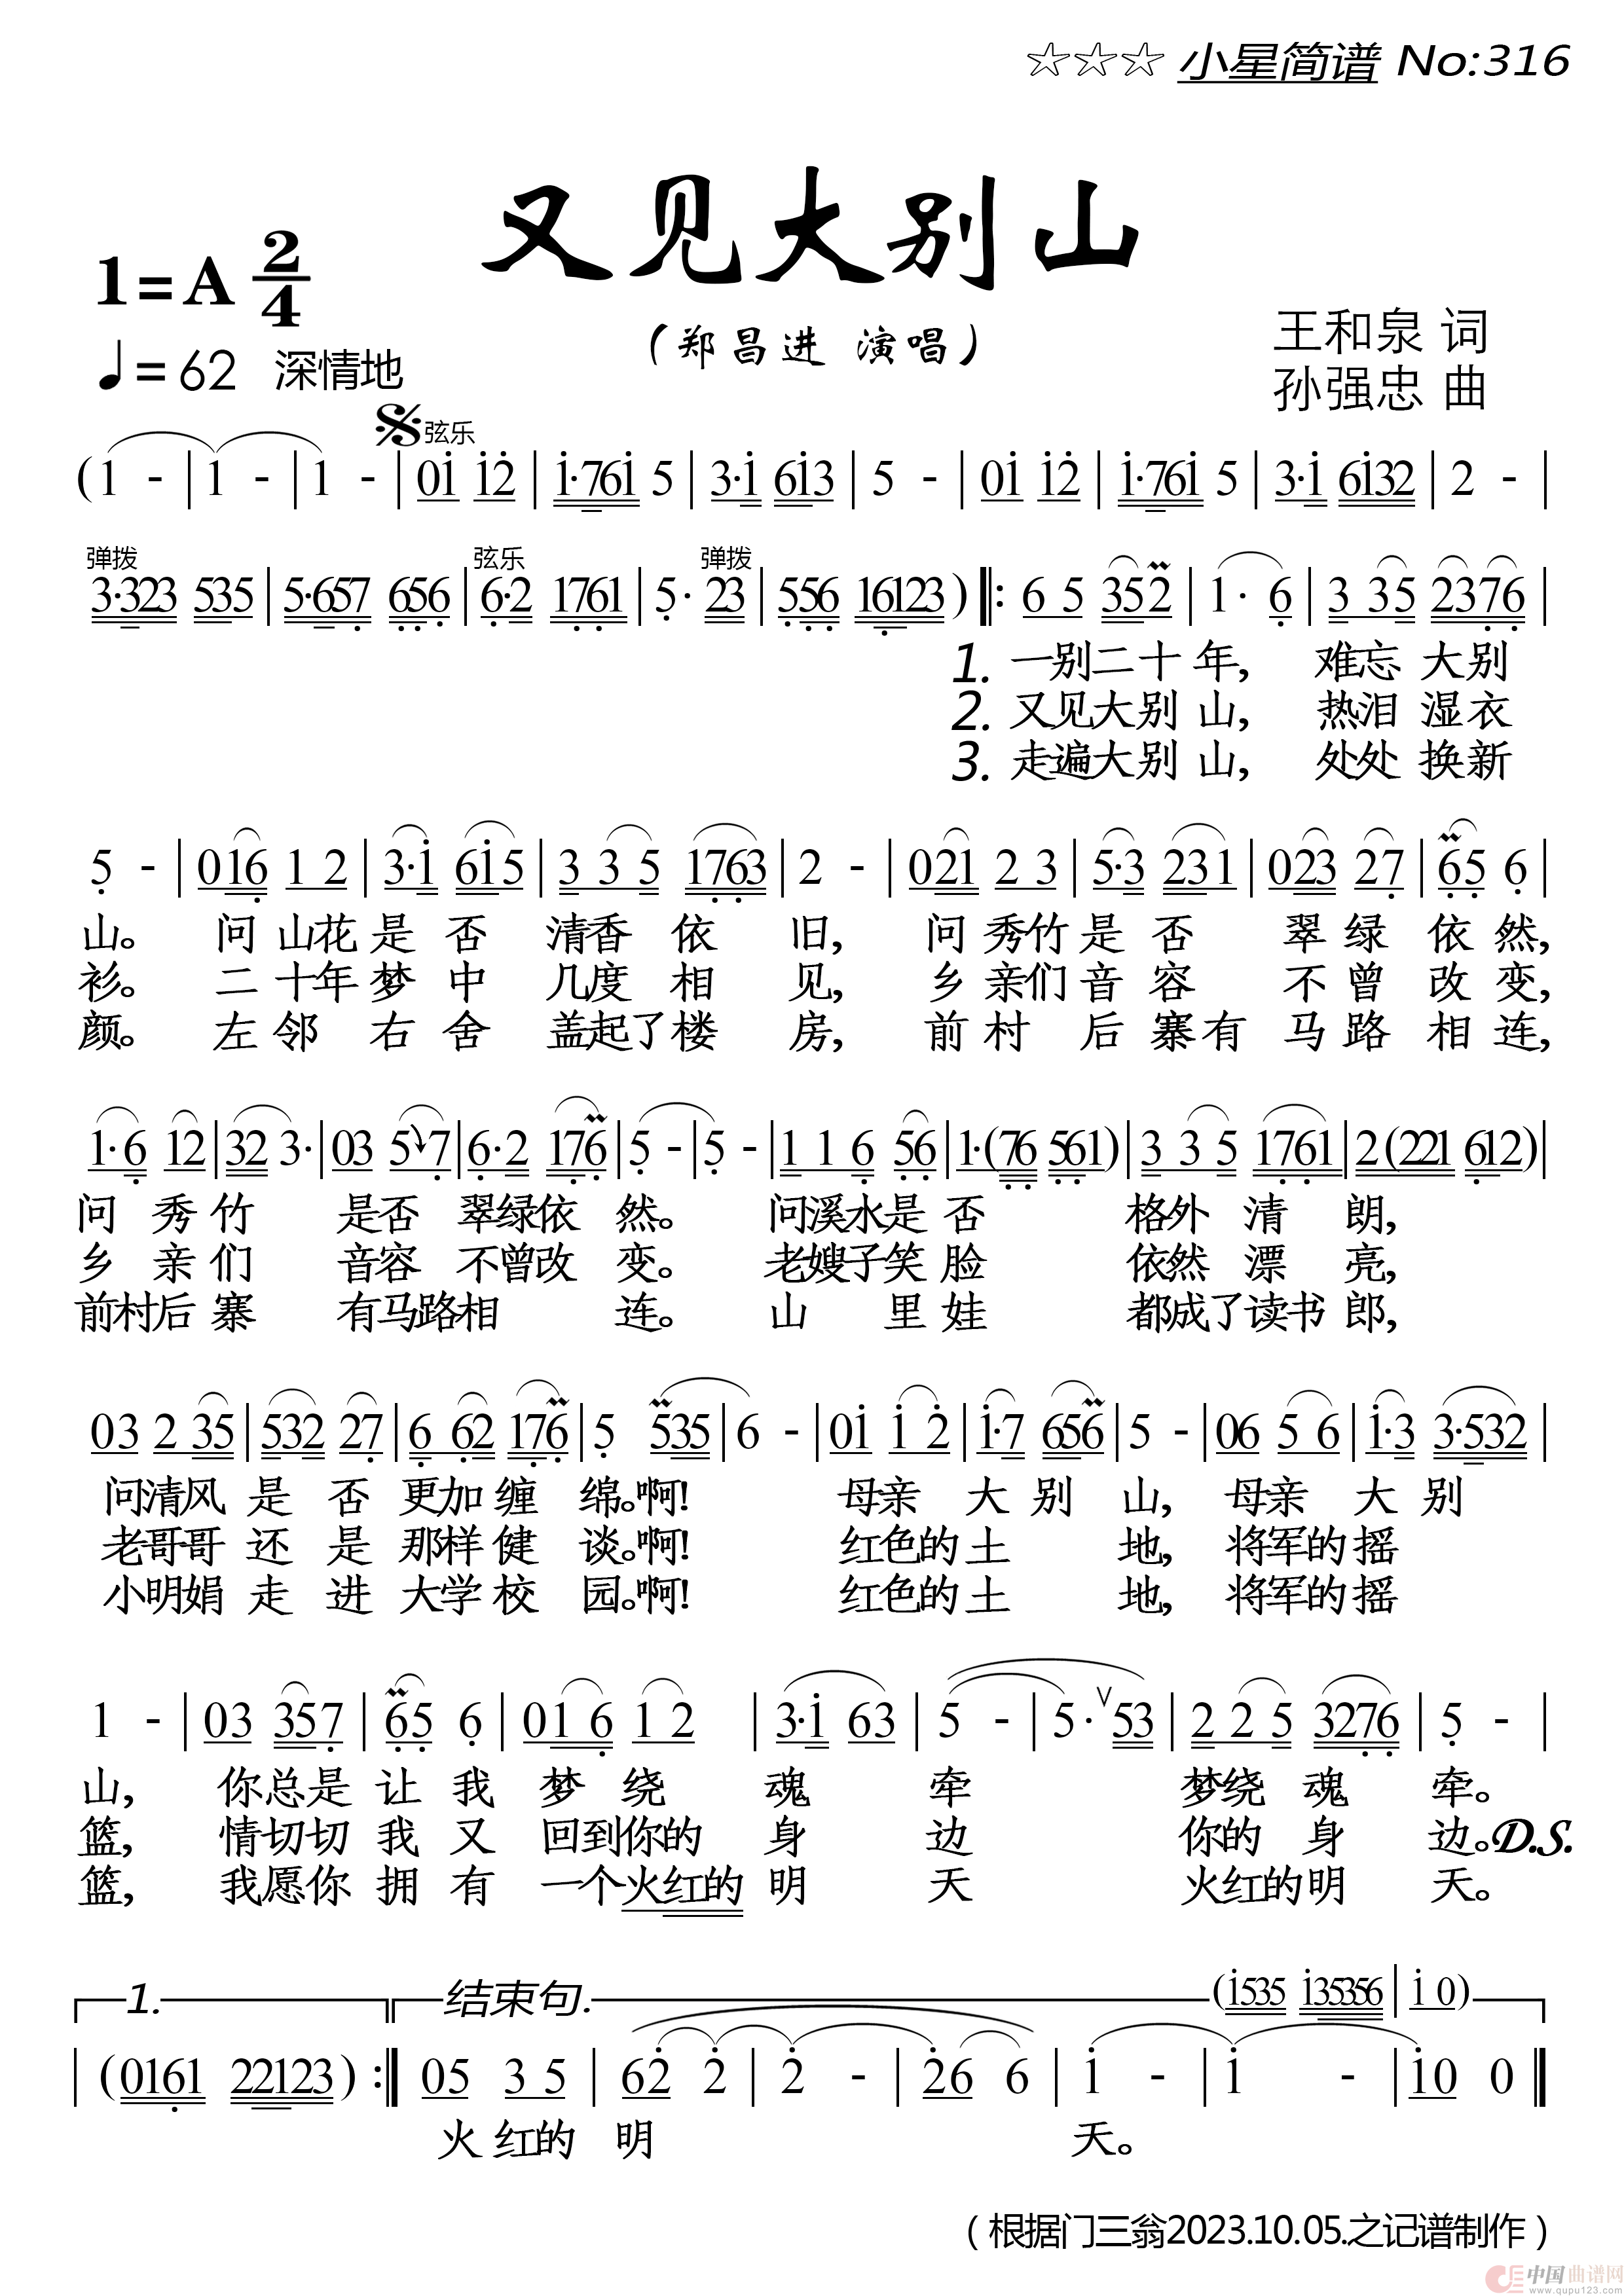 ☆☆☆ 小星简谱 No:316
又见大别山
1=A 2/4
（郑昌进 演唱）
王和泉 词
♩=62 深情地
孙强忠 曲
弦乐
(1 - | 1 - | 1 - | 01 12 | 1·761 5 | 3·1 613 | 5 - | 01 12 | 1·761 5 | 3·1 6132 | 2 - |
弹拨 弦乐 弹拨
3·323 535 | 5·657 656 | 6·2 1761 | 5· 23 | 556 16123) ‖: 6 5 352 | 1· 6 | 3 3 5 2376 |
1. 一别二十年， 难忘大别
2. 又见大别山， 热泪湿衣
3. 走遍大别山， 处处换新
5 - | 016 1 2 | 3·1 615 | 3 3 5 1763 | 2 - | 021 2 3 | 5·3 231 | 023 27 | 65 6 |
山。 问山花是否 清香依旧， 问秀竹是否 翠绿依然，
衫。 二十年梦中 几度相见， 乡亲们音容 不曾改变，
颜。 左邻右舍 盖起了楼房， 前村后寨有马路相连，
1·6 12 | 32 3· | 03 5 7 | 6·2 176 | 5 - | 5 - | 1 1 6 56 | 1·(76 561) | 3 3 5 1761 | 2 (221 612) |
问秀竹 是否翠绿依然。 问溪水是否 格外清朗，
乡亲们 音容不曾改变。 老嫂子笑脸 依然漂亮，
前村后寨 有马路相连。 山里娃 都成了读书郎，
03 2 35 | 532 27 | 6 62 176 | 5 535 | 6 - | 01 1 2 | 1·7 656 | 5 - | 06 5 6 | 1·3 3·532 |
问清风是否更加缠绵。啊！ 母亲大别山， 母亲大别
老哥哥还是那样健谈。啊！ 红色的土地， 将军的摇
小明娟走进大学校园。啊！ 红色的土地， 将军的摇
1 - | 03 357 | 65 6 | 01 6 1 2 | 3·1 63 | 5 - | 5· V 53 | 2 2 5 3276 | 5 - |
山， 你总是让我梦绕魂牵 梦绕魂牵。
篮， 情切切我又回到你的身边 你的身边。D.S.
篮， 我愿你拥有一个火红的明天 火红的明天。
1. 结束句. (1535 135356 | 1 0)
| (0161 22123) :‖ 05 3 5 | 62 2 | 2 - | 26 6 | 1 - | 1 - | 10 0 ‖
火红的明 天。
（根据门三翁2023.10.05.之记谱制作）
中国曲谱网
www.qupu123.com